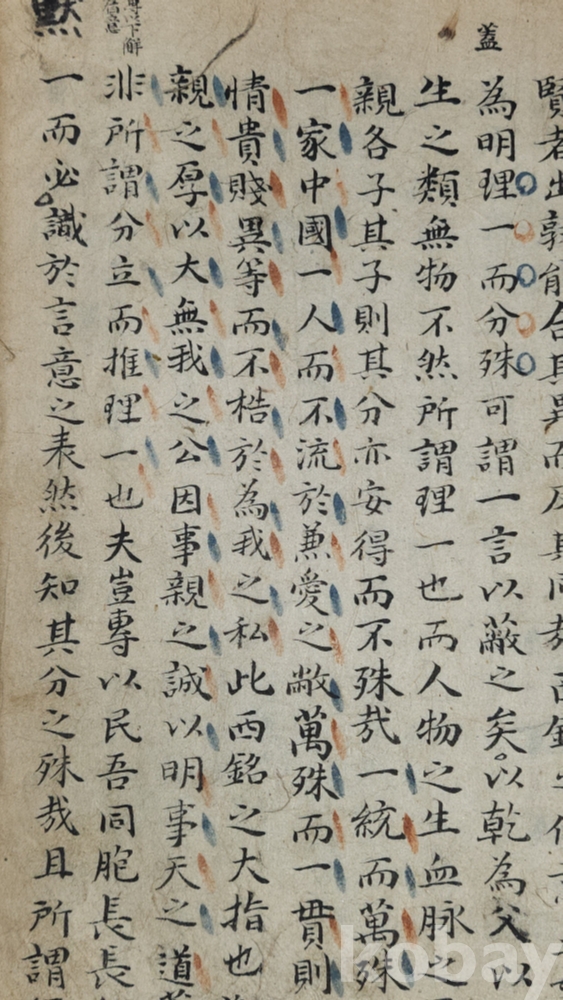 賢者出孰能合其異而反其同哉西銘之作意
盖
為明理一而分殊可謂一言以蔽之矣以乾為父以
生之類無物不然所謂理一也而人物之生血脉之
親各子其子則其分亦安得而不殊㢤一統而萬殊
一家中國一人而不流於兼愛之敝萬殊而一貫則
情貴賤異等而不梏於為我之私此西銘之大指也
親之厚以大無我之公因事親之誠以明事天之道
非所謂分立而推理一也夫豈専以民吾同胞長長
一而必識於言意之表然後知其分之殊㢤且所謂
默
bobay